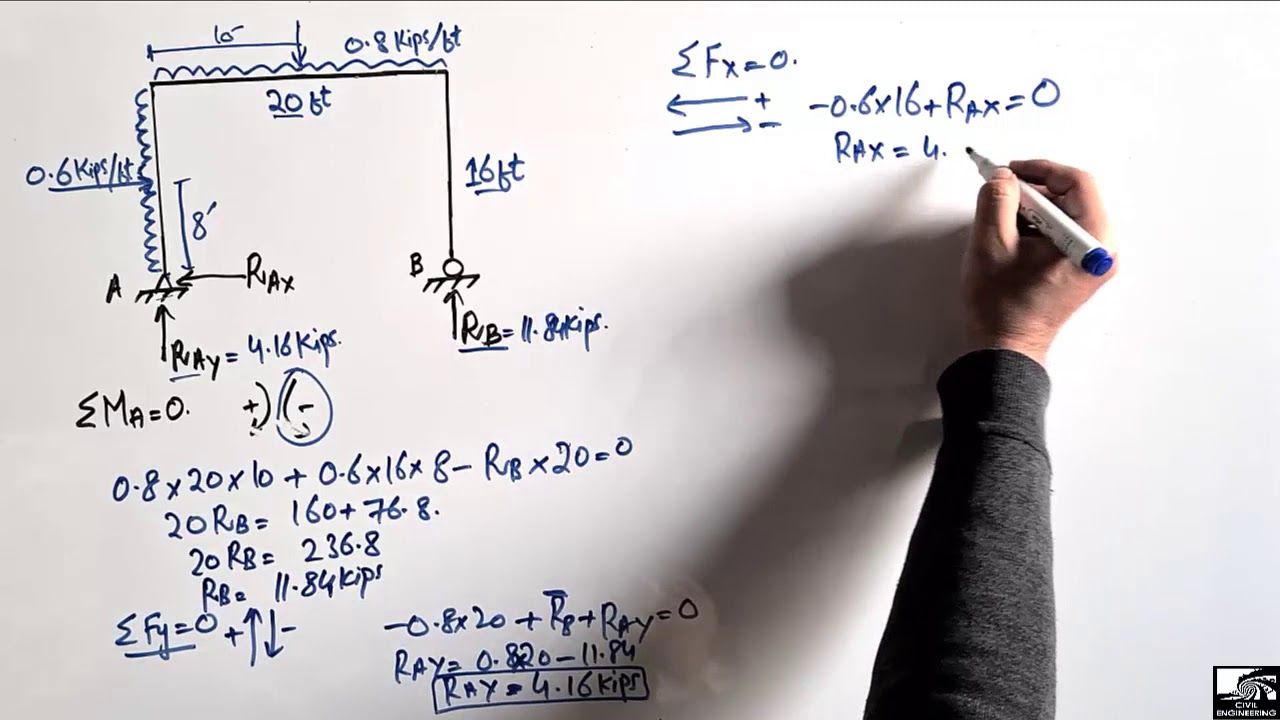 10'
0.8 Kips/ft
20 ft
0.6 Kips/ft
16 ft
8'
A
RAX
B
RAY = 4.16 Kips.
RB = 11.84 Kips.
ΣMA=0. +) (-
0.8×20×10 + 0.6×16×8 - RB×20=0
20RB= 160+76.8.
20 RB= 236.8
RB= 11.84 Kips
ΣFy=0 +↑↓-
-0.8×20 + RB+RAY=0
RAY= 0.820-11.84
RAY = 4.16 Kips
ΣFx=0.
← +
→ -
-0.6×16+RAX=0
RAX = 4.
CIVIL
ENGINEERING